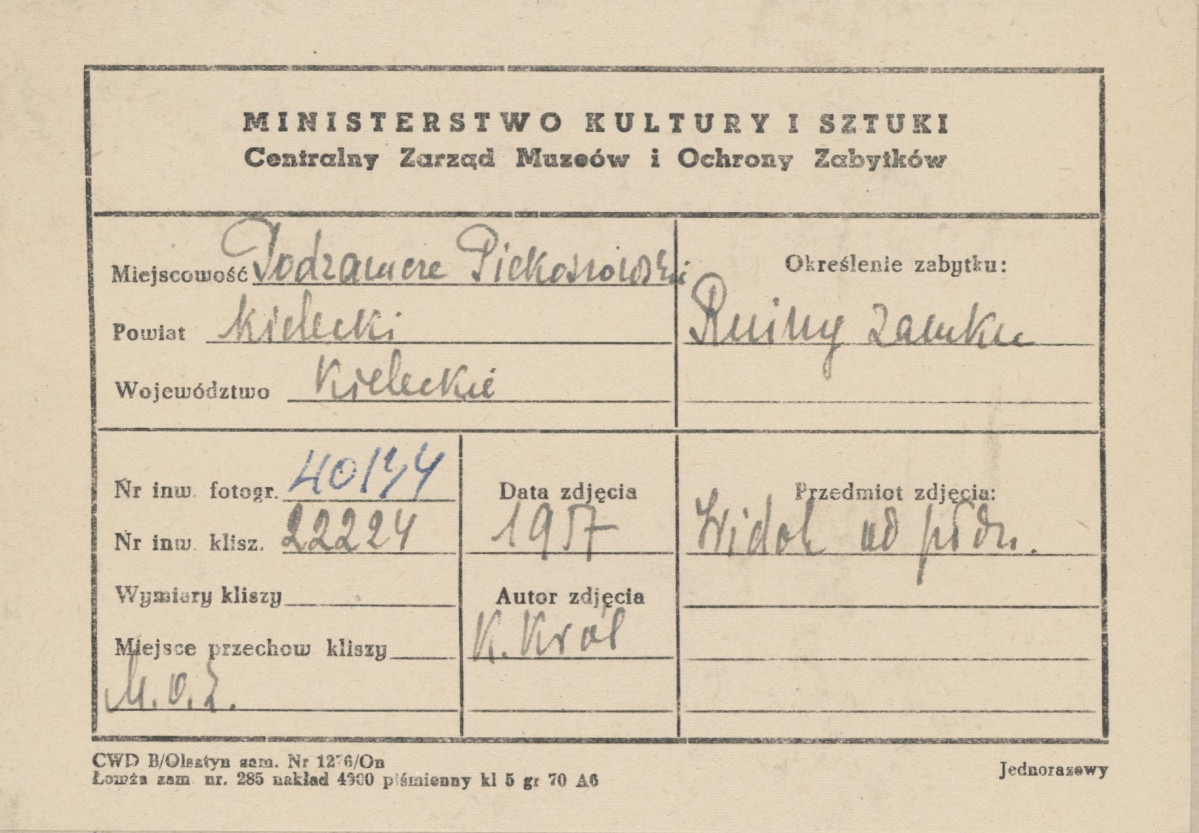 MINISTERSTWO KULTURY I SZTUKI
Centralny Zarząd Muzeów i Ochrony Zabytków
Miejscowość Podzamcze Piekoszowskie
Powiat kielecki
Województwo Kieleckie
Określenie zabytku:
Ruiny zamku
Nr inw. fotogr.
Nr inw. klisz. 22224
Wymiary kliszy
Miejsce przechow kliszy
M.O.Z.
Data zdjęcia
1957
Autor zdjęcia
K. Król
Przedmiot zdjęcia:
Widok od płdn.
CWD B/Olsztyn zam. Nr 1276/On
Łomża zam nr. 285 nakład piśmienny kl 5 gr 70 A6
Jednorazowy